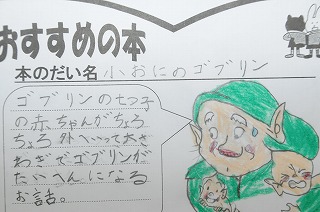 おすすめの本
本のだい名 小おにのゴブリン
ゴブリンの七つ子
の赤ちゃんがちょろ
ちょろ外へいって大さ
わぎでゴブリンが
たいへんになる
お話。